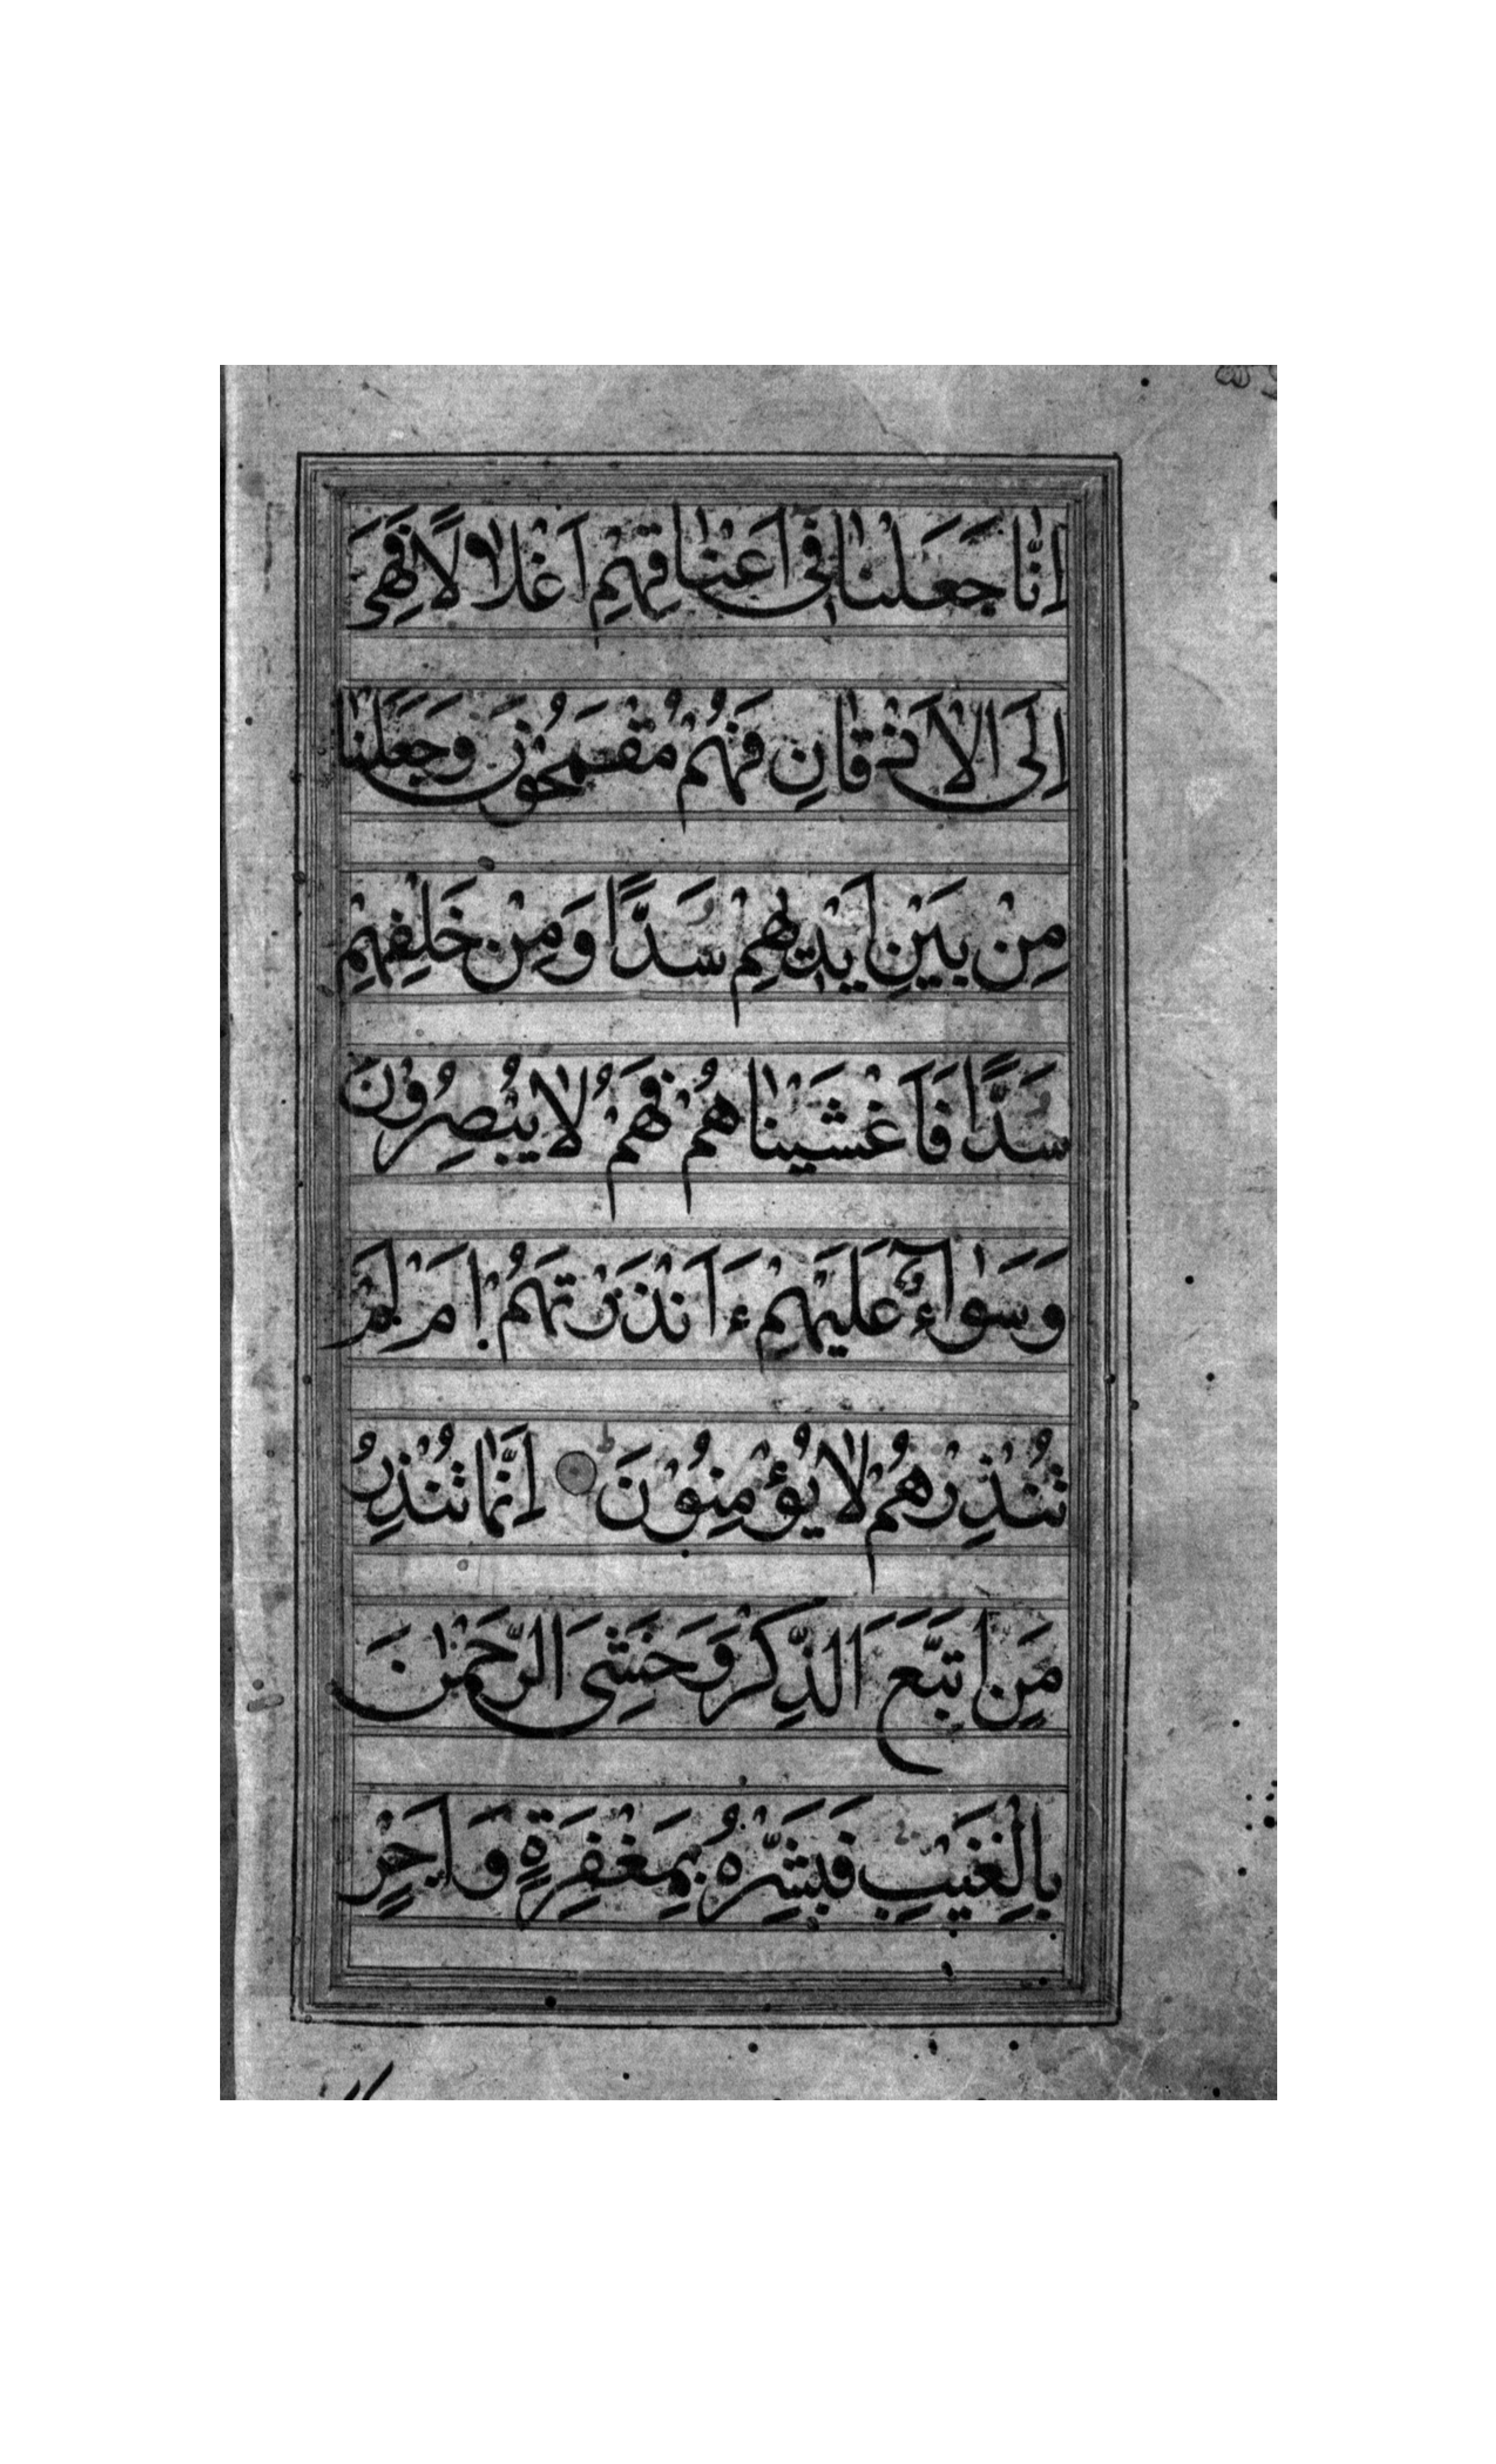 اِنَّا جَعَلْنَا فِى اَعْنَاقِهِمْ اَغْلَالًا فَهِىَ
اِلَى الْاَذْقَانِ فَهُمْ مُقْمَحُوْنَ وَجَعَلْنَا
مِنْ بَيْنِ اَيْدِيهِمْ سَدًّا وَمِنْ خَلْفِهِمْ
سَدًّا فَاَغْشَيْنَاهُمْ فَهُمْ لَا يُبْصِرُوْنَ
وَسَوَآءٌ عَلَيْهِمْ ءَاَنْذَرْتَهُمْ اَمْ لَمْ
تُنْذِرْهُمْ لَا يُؤْمِنُوْنَ اِنَّمَا تُنْذِرُ
مَنِ اتَّبَعَ الذِّكْرَ وَخَشِىَ الرَّحْمٰنَ
بِالْغَيْبِ فَبَشِّرْهُ بِمَغْفِرَةٍ وَاَجْرٍ